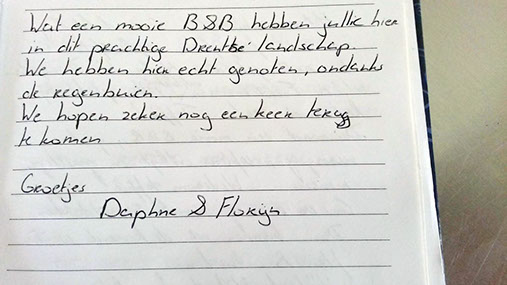 Wat een mooie B&B hebben jullie hier
in dit prachtige Drentse landschap.
We hebben hier echt genoten, ondanks
de regenbuien.
We hopen zeker nog een keer terug
te komen
Groetjes
Daphne & Florijn